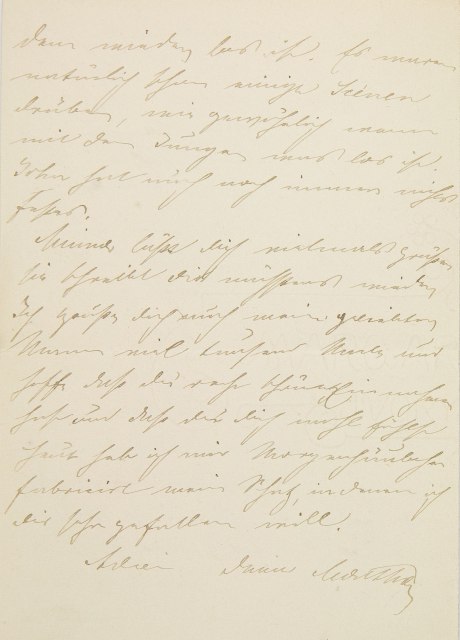 dem wieder los ist. Es waren
natürlich schon einige Scenen
drüben, wie gewöhnlich wenn
mit dem Jungen was los ist.
John hat auch noch immer nichts
Festes.
läßt dich vielmals grüßen
sie schreibt dir nächstens wieder
Ich grüße dich auch mein geliebter
viel tausend Male und
hoffe daß du recht schöne Einnahmen
hast und daß du dich wohl fühlst
heut hab ich mir Morgenhäubchen
fabricirt mein Schatz, in denen ich
dir sehr gefallen will.
Adieu deine